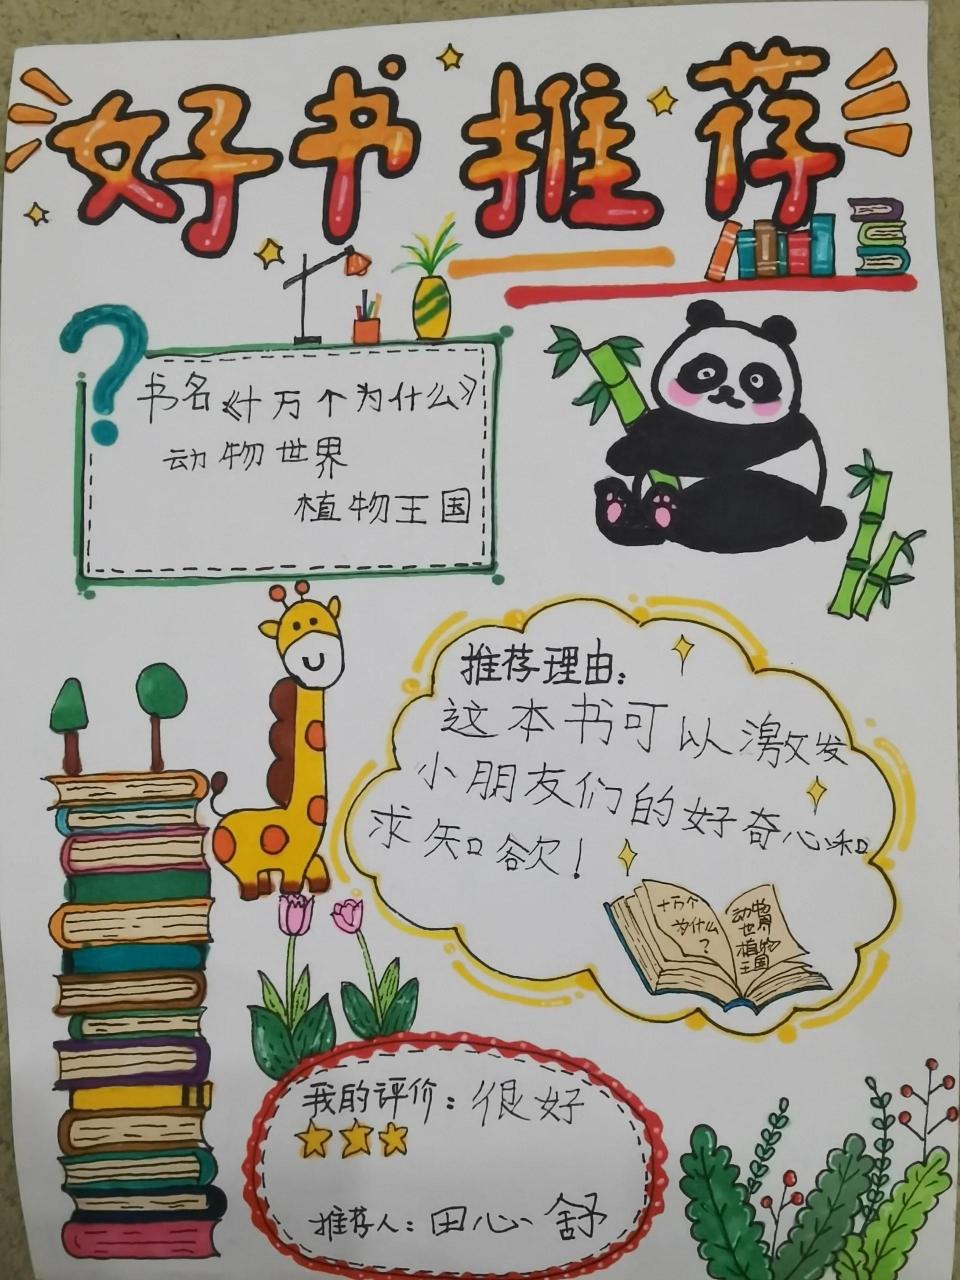 好书推荐
书名《十万个为什么》
动物世界
植物王国
推荐理由:
这本书可以激发
小朋友们的好奇心和
求知欲!
十万个
为什么
?
动物
世界
植物
王国
我的评价:很好
推荐人:田心舒